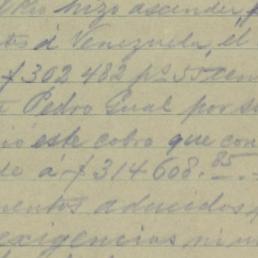 hizo ascender
á Venezuela, el
f 302 482 ps 55 cen
Pedro Gual por su
este cobro que con
de á f 314608.85.-
mentos aducidos
exigencias ni